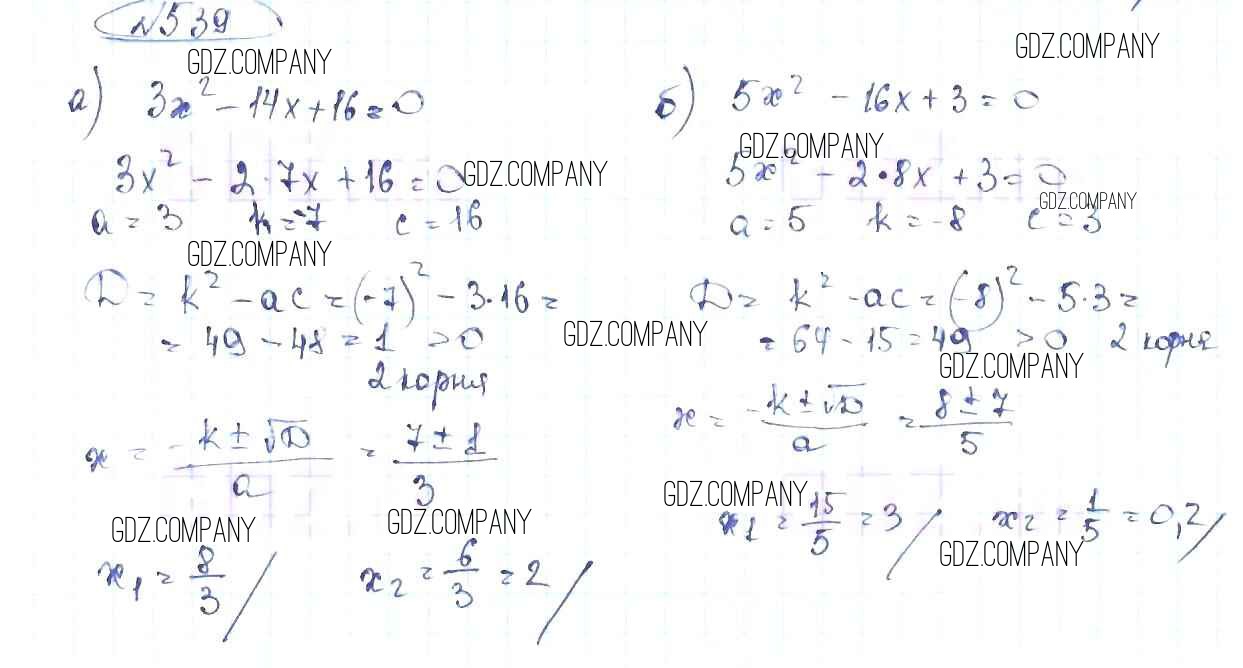 №539
GDZ.COMPANY
GDZ.COMPANY
а) 3x² - 14x + 16 = 0
GDZ.COMPANY
3x² - 2·7x + 16 = 0
GDZ.COMPANY
a = 3 k = -7 c = 16
GDZ.COMPANY
D = k² - ac = (-7)² - 3·16 =
= 49 - 48 = 1 > 0
GDZ.COMPANY
2 корня
x = (-k ± √D)/a = (7 ± 1)/3
GDZ.COMPANY
GDZ.COMPANY
x₁ = 8/3 / x₂ = 6/3 = 2 /
б) 5x² - 16x + 3 = 0
GDZ.COMPANY
5x² - 2·8x + 3 = 0
GDZ.COMPANY
a = 5 k = -8 c = 3
D = k² - ac = (-8)² - 5·3 =
= 64 - 15 = 49 > 0 2 корня
GDZ.COMPANY
x = (-k ± √D)/a = (8 ± 7)/5
GDZ.COMPANY
x₁ = 15/5 = 3 / x₂ = 1/5 = 0,2 /
GDZ.COMPANY